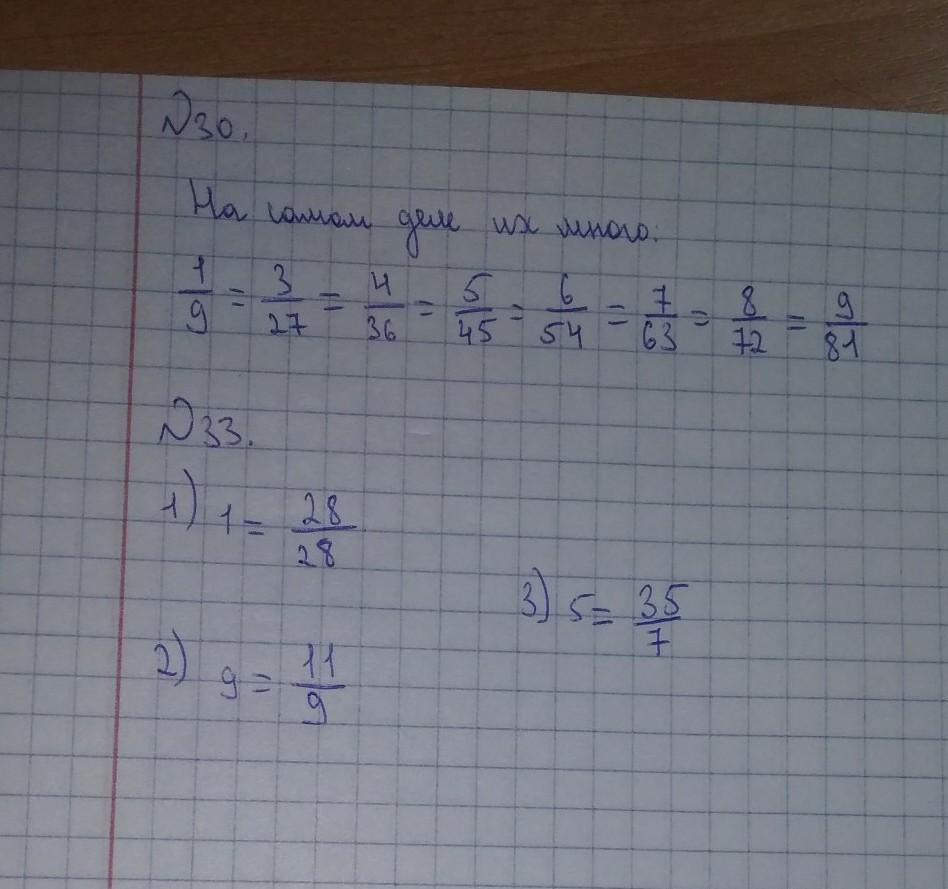 №30.
На самом деле их много:
1/9 = 3/27 = 4/36 = 5/45 = 6/54 = 7/63 = 8/72 = 9/81
№33.
1) 1 = 28/28
3) 5 = 35/7
2) 9 = 11/9